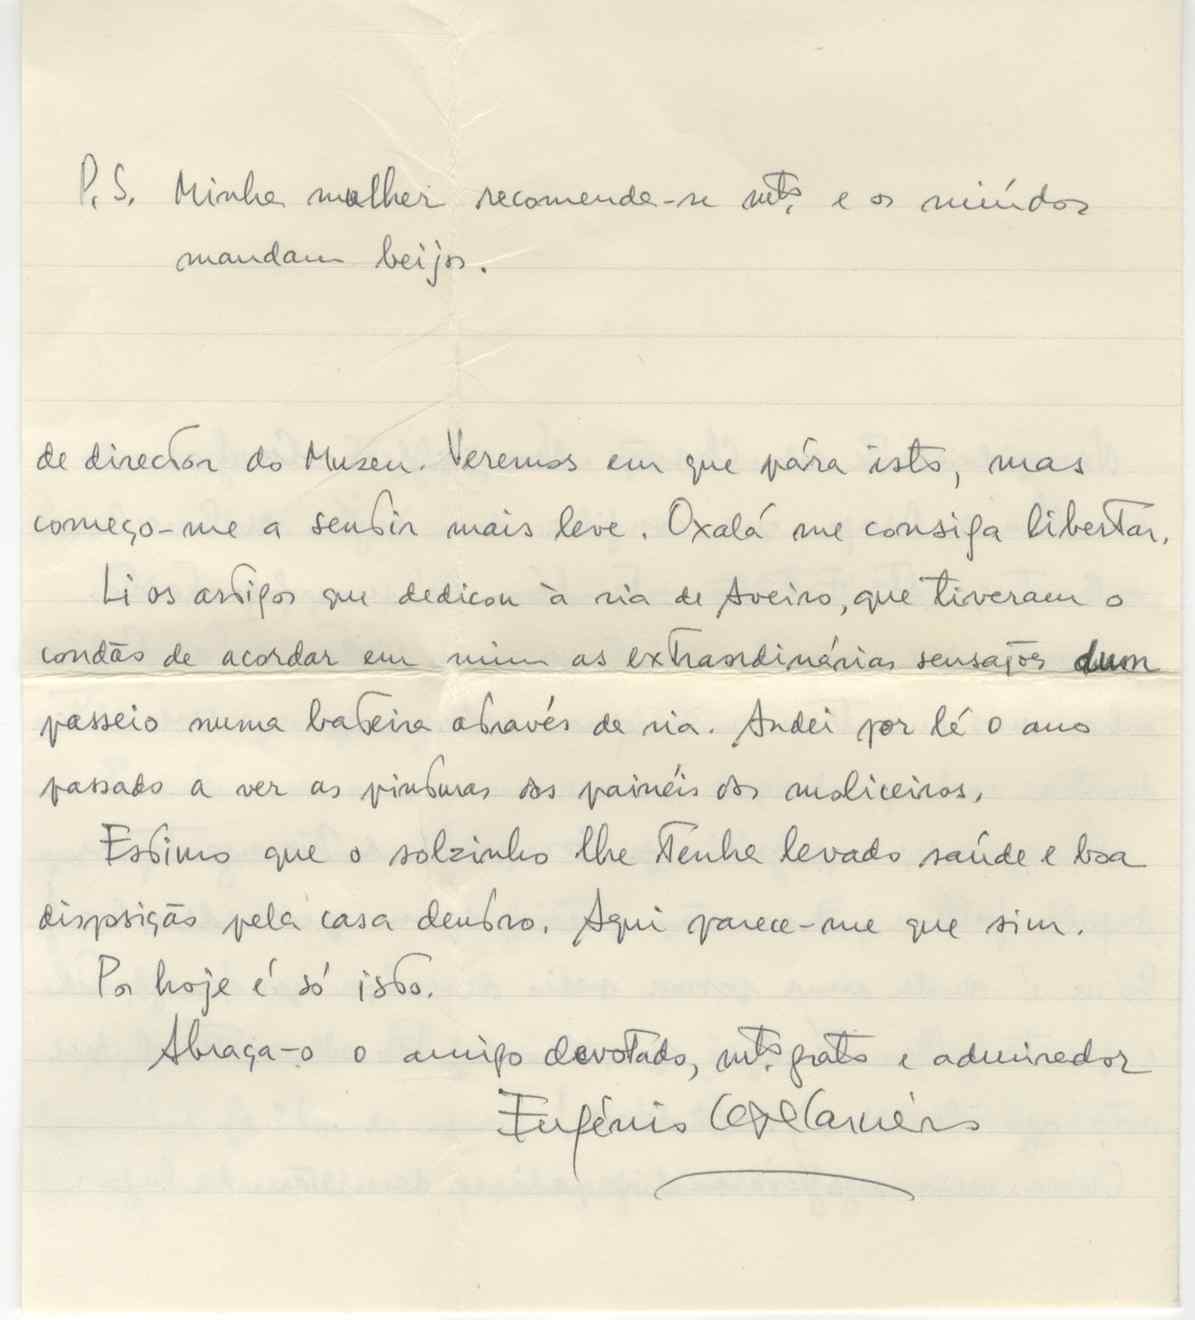 P.S. Minha mulher recomenda-se mto. e os miúdos
mandam beijos.
de director do Museu. Veremos em que pára isto, mas
começo-me a sentir mais leve. Oxalá me consiga libertar.
Li os artigos que dedicou à ria de Aveiro, que tiveram o
condão de acordar em mim as extraordinárias sensações dum
passeio numa bateira através da ria. Andei por lá o ano
passado a ver as pinturas dos painéis dos moliceiros.
Estimo que o solzinho lhe tenha levado saúde e boa
disposição pela casa dentro. Aqui parece-me que sim.
Por hoje é só isto.
Abraça-o o amigo devotado, mto. grato e admirador
Eugénio